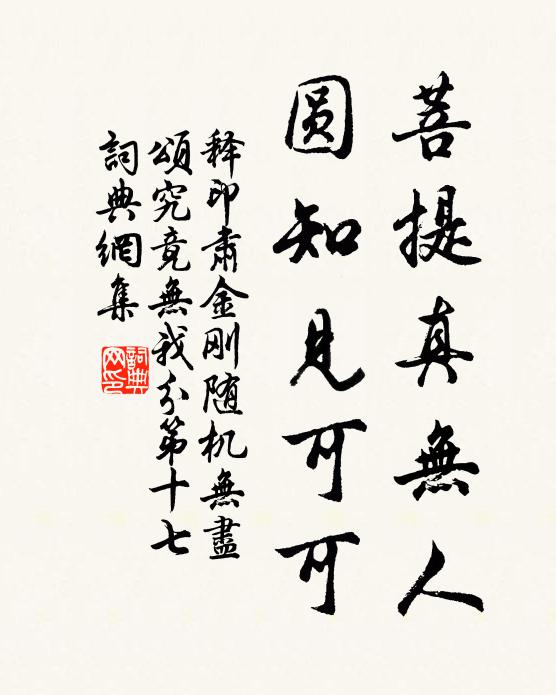 菩提真無人
圆知見可可
释印肃金刚随机無盡
頌究竟無我分第十七
詞典網集
詞典網印